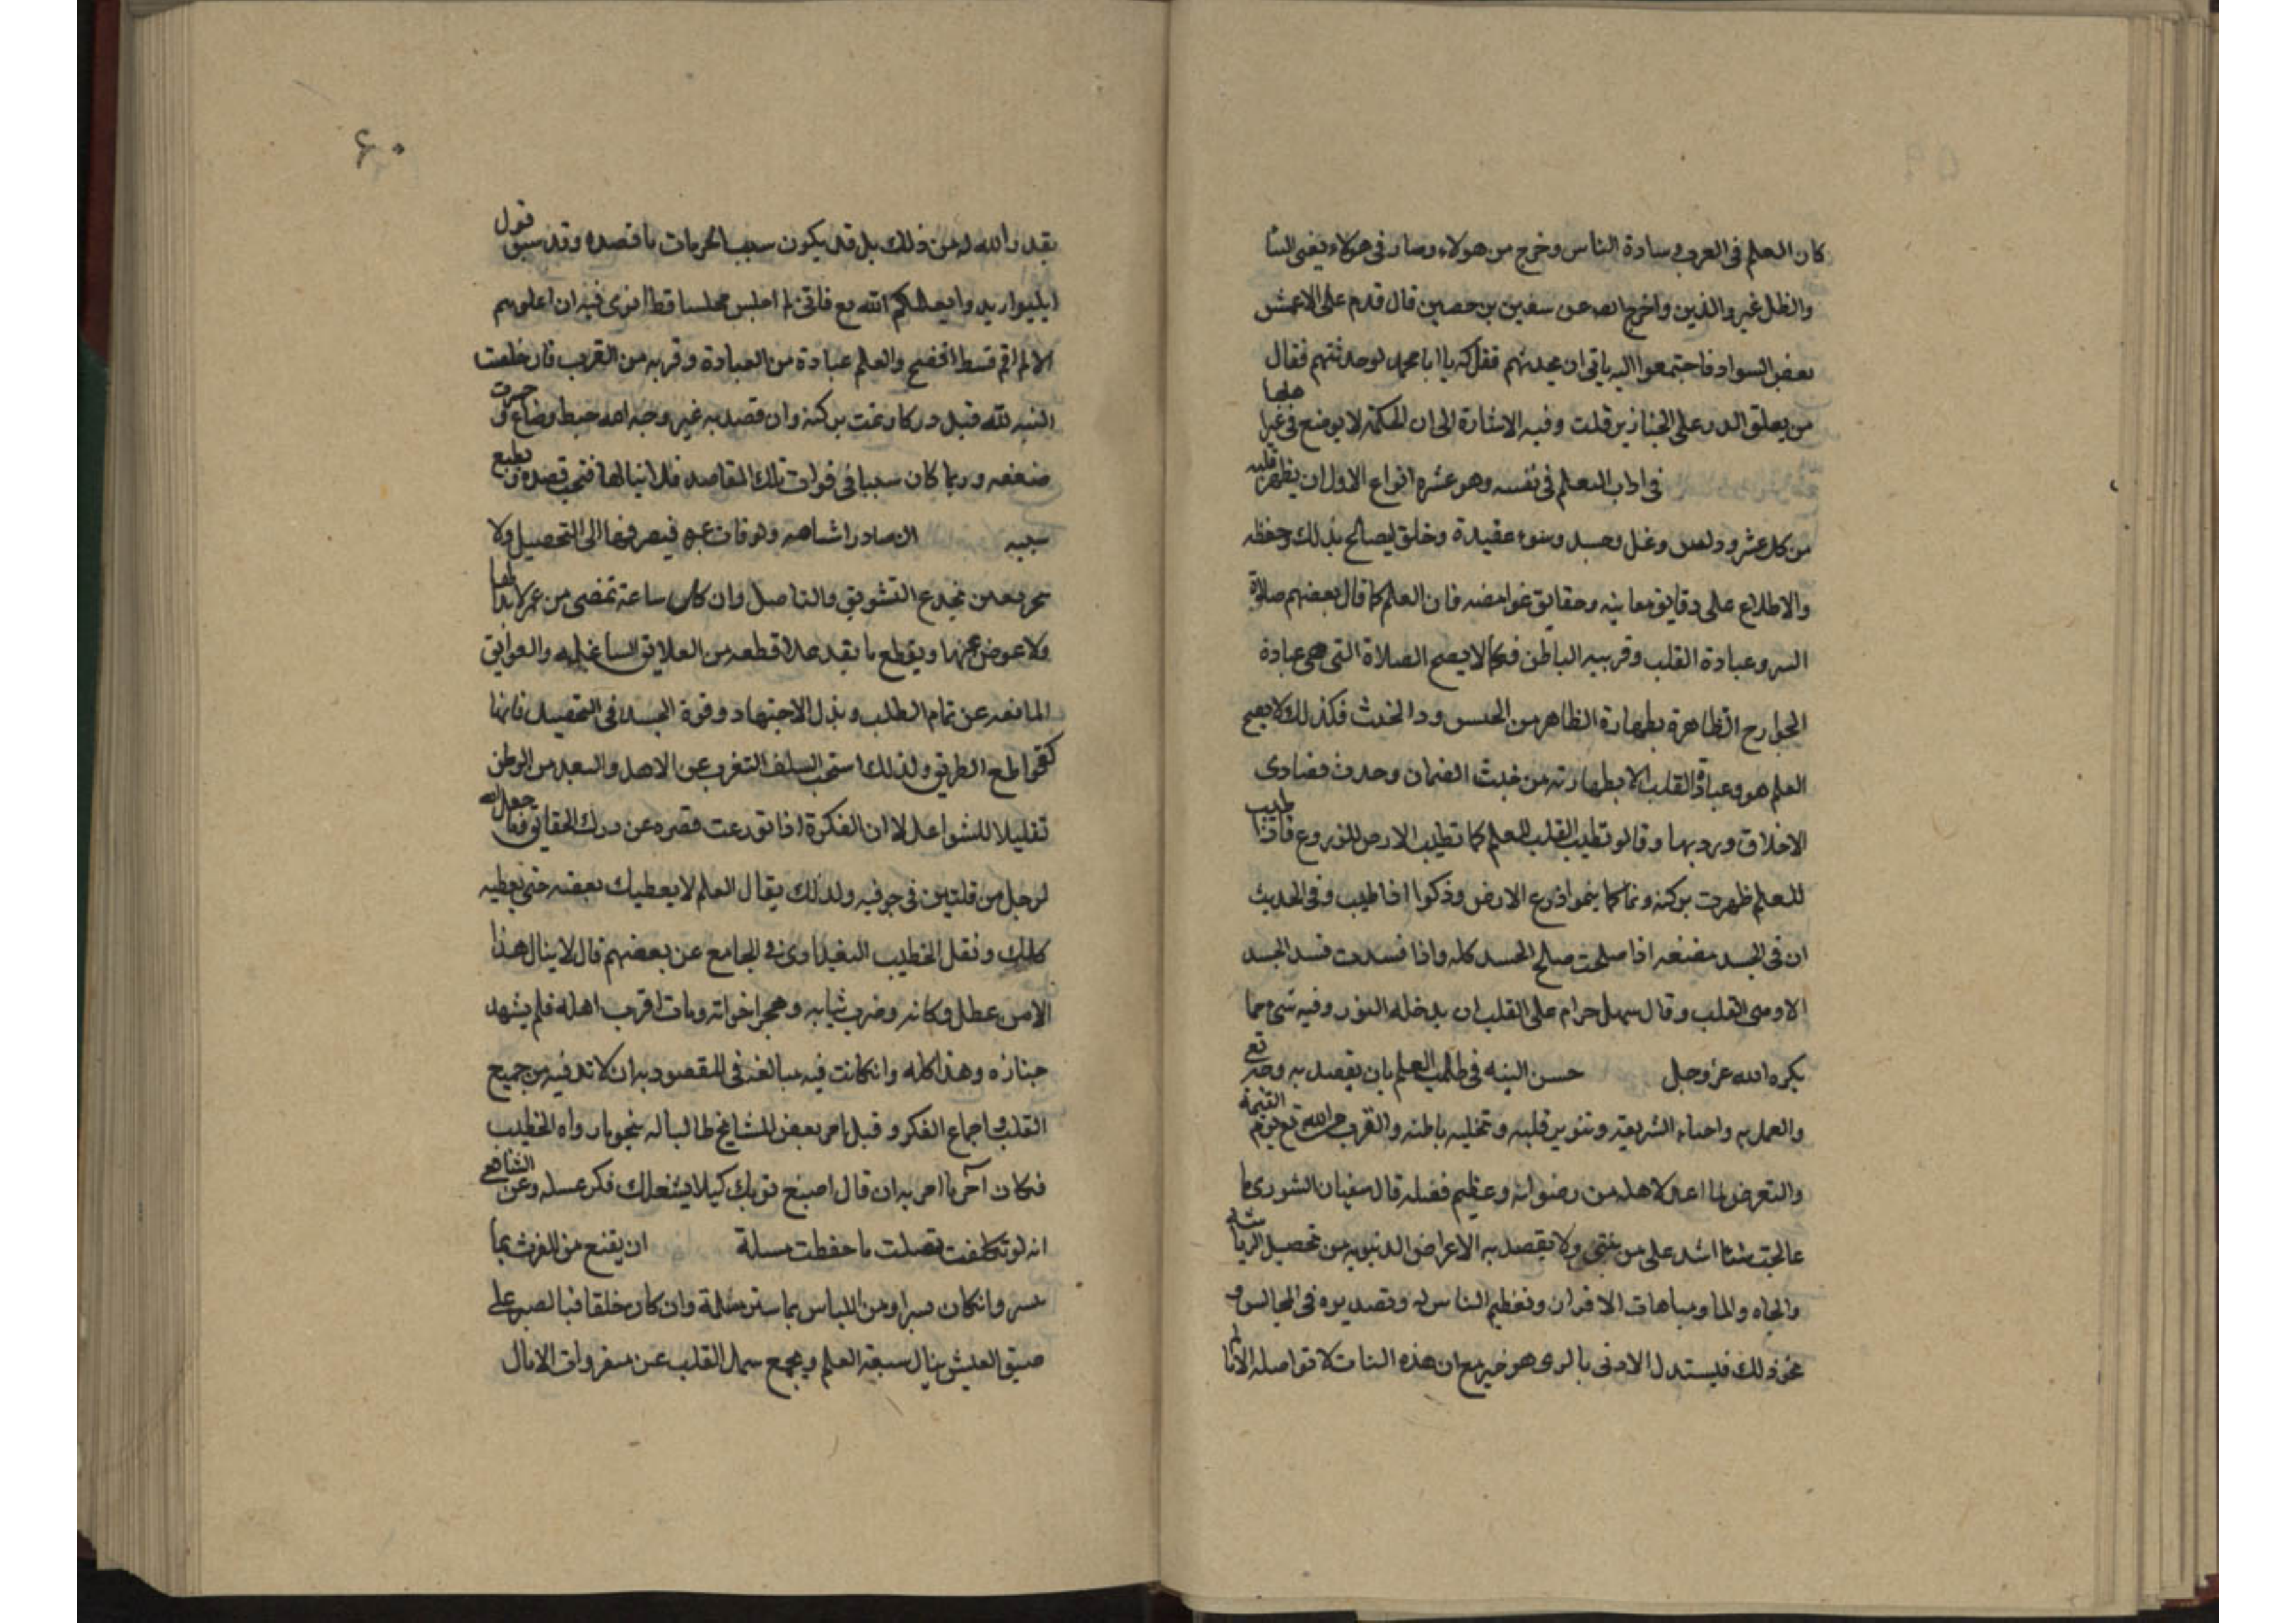 كان العلم فى العرب وسادة الناس وخرج من هولاء وصار فى هولاء يغنى النبا
والظل غير والذين واخرج الص عن سفين بن حصين قال قدم على الاعمش
بعض السواد فاجتمعوا اليه ياتى ان يحدثهم فقل له يا ابا محمد لو حدثتهم فقال
من يعلق الدر على الخنازير قلت وفيه الاشارة الى ان الحكمة لا يوضع فى غير اهلها
فى اداب المعلم فى نفسه وهو عشره انواع الاول ان يطهر قلبه
من كل عشر ودنس وغل وحسد وسوء عقيدة وخلق ليصالح بذلك وحفظه
والاطلاع على دقايق معاينه وحقايق غوامضه فان العلم كما قال بعضهم صلاة
السر وعبادة القلب وقربيه الباطن فكما لا يصح الصلاة التى هى عبادة
الجوارح الظاهرة بطهارة الظاهر من الحدس ودا لخبث فكذلك لا يصح
العلم هو وعبادة القلب الا بطهارته من خبث الضمان وحدث مضاوى
الاخلاق ورديها وقالو تطيب القلب للعلم كما تطيب الارض للزروع فاذا طيب
للعلم ظهرت بركته ونما كما ينموا ذرع الارض وذكوا اذا طيب وفى الحديث
ان فى الجسد مضغه اذا صلحت صلح الجسد كله واذا فسدت فسد الجسد
الا وهى القلب وقال سهل حرام على القلب ان يدخله النور وفيه شئ مما
يكره الله عز وجل حسن النيه فى طلب العلم بان يقصد به وجه تعى
والعمل به واحياء الشريعة وتنوير قلبه وتخليه باطنه والقرب من الله تع يوم القيمة
والتعرض لما اعد لاهله من رضوانه وعظيم فضله قال سفيان الثورى ما
عالجت شئا اشد على من نيتى ولا يقصد به الاعراض الدنيويه من تحصيل الرياسة
والجاه والما ومباهات الاقران وتعظيم الناس له وتصديره فى المجالس و
نحو ذلك فيستدل الادنى بالرى هو خير مع ان هذه النيات لا تواصله الا لما
٦٠
يقدر الله له من ذلك بل قد يكون سبب الحرمات ما قصده وقد سبق قول
ابليوا ريد وا يعلمكم الله مع فاتى لم اجلس مجلسا قط انوى فيه ان اعلوهم
الا لم اقم قسط افضح والعلم عبادة من العبادة وقربه من القرب فان خلصت
النيه لله قبل وزكا ونمت بركته وان قصد به غير وجه الله حبط وضاع و خسرت
صفقه وربما كان سببا فى فوات تلك المقاصد فلا ينالها فتخب قصده و يضيع
سببه ان يبادر اشبابه ولو فات عمره فيصرفها الى التحصيل ولا
يخر بعد من يخدع التشويق والتاميل وان كل ساعة تمضى من عمر لا بد لها
ولا عوض عنها ويقطع ما يقدر على قطعه من العلايق الشاغله والعوايق
المانعه عن تمام الطلب وبذل الاجتهاد وقوة الجد فى التحصيل فانها
كقواطع الطريق ولذلك استحب السلف التغرب عن الاهل والبعد من الوطن
تقليلا للشواعل لا ان الفكرة اذا تورعت قصره عن درك الحقايق وما جعل الله
لرجل من قلبين فى جوفيه ولذلك يقال العلم لا يعطيك بعضه حتى تعطيه
كلك ونقل الخطيب البغداوى فى الجامع عن بعضهم قال لا ينال هذا
الا من عطل وكانه وخرب شابه وهجر اخوانه ومات اقرب اهله فلم يشهد
جنازه وهذا كله وان كانت فيه مبالغه فى المقصود به ان لا تد فيه من جميع
القلب واجماع الفكر وقبل امر بعض المشايخ طالبا له بنحو ما رواه الخطيب
فكان آخر ما امر به ان قال اصبغ ثوبك كيلا يشغلك فكر غسله وعن الشافعى
انه لو تكلفت بصلت ما حفظت مسلة ان يقنع من القوت بما
يسر وان كان يسرا ومن اللباس بما ستر مثله وان كان خلقا فبالصبر على
ضيق العيش ينال سعة العلم ويجمع سمل القلب عن مفروات الامال